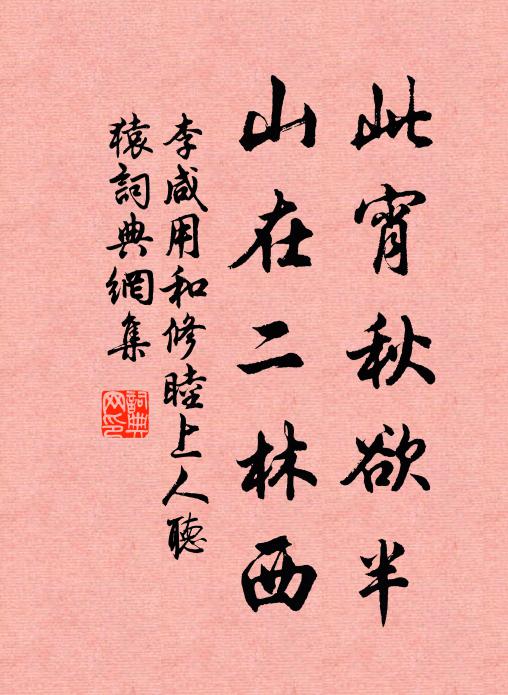 此宵秋欲半
山在二林西
李咸用和修睦上人聽
猿詞典網集
詞典
网印